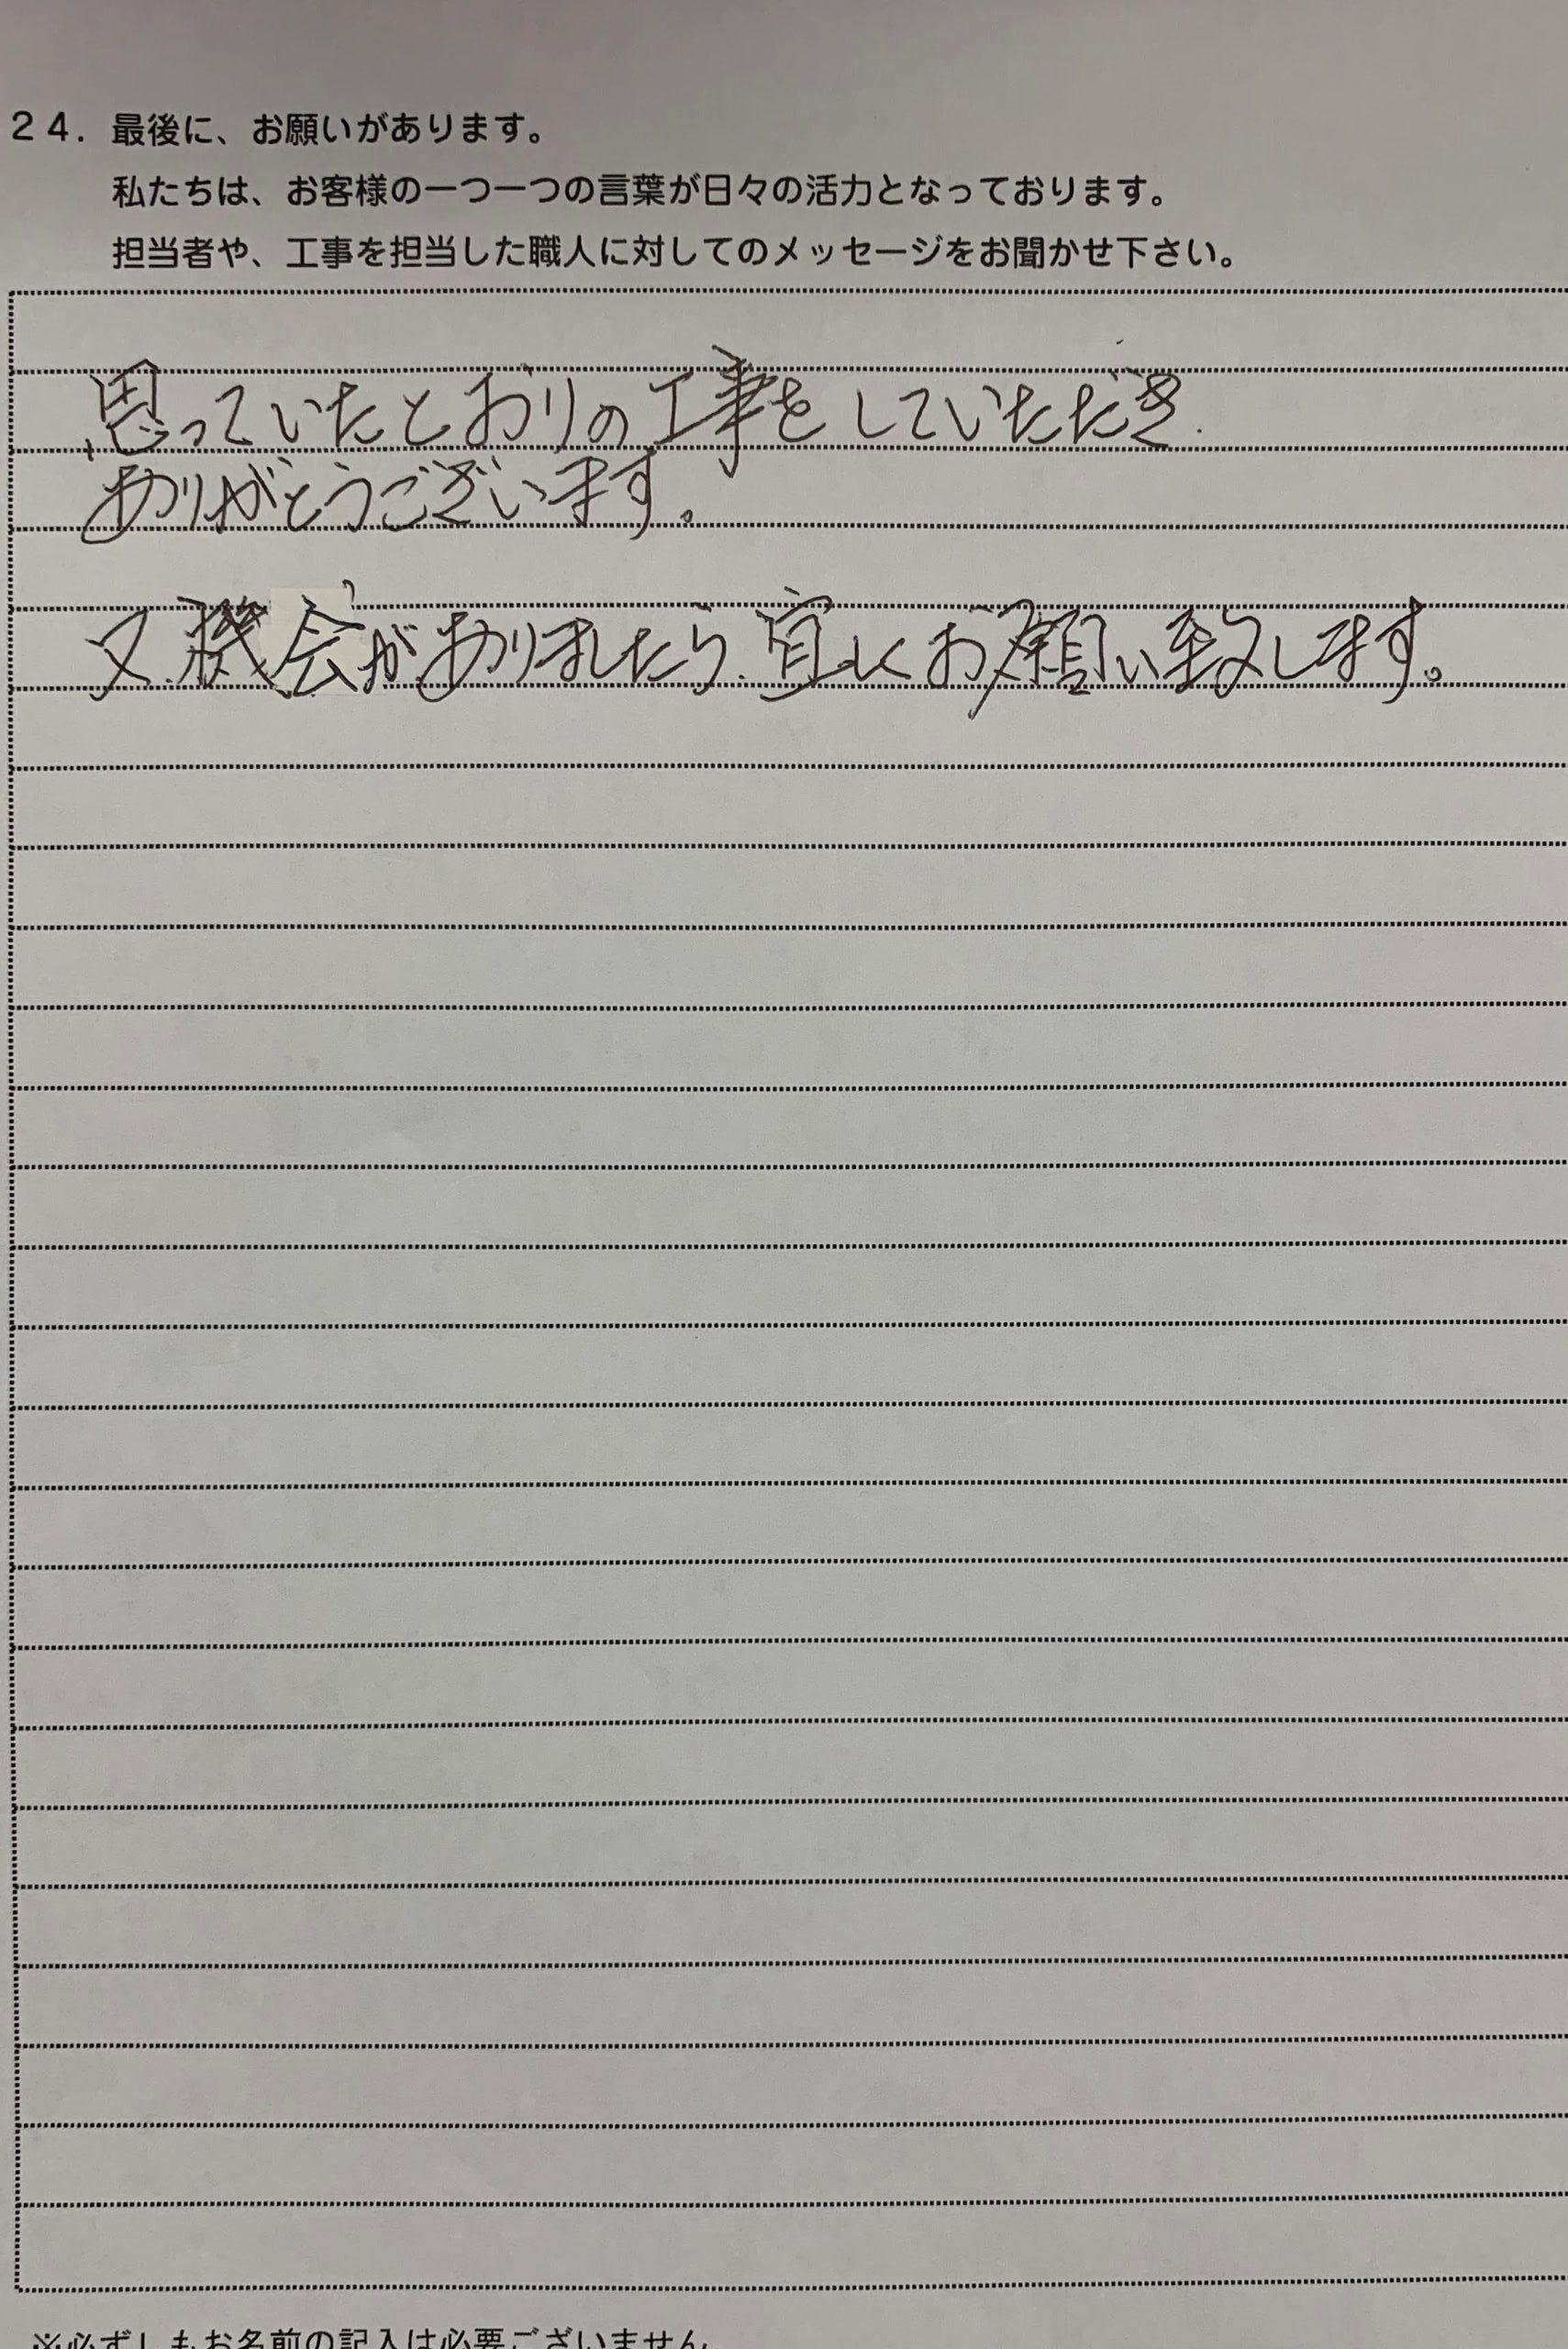 24. 最後に、お願いがあります。
私たちは、お客様の一つ一つの言葉が日々の活力となっております。
担当者や、工事を担当した職人に対してのメッセージをお聞かせ下さい。
思っていたとおりの工事をしていただき.
ありがとうございます。
又機会がありましたら.宜しくお願い致します。
※必ずしもお名前の記入は必要ございません